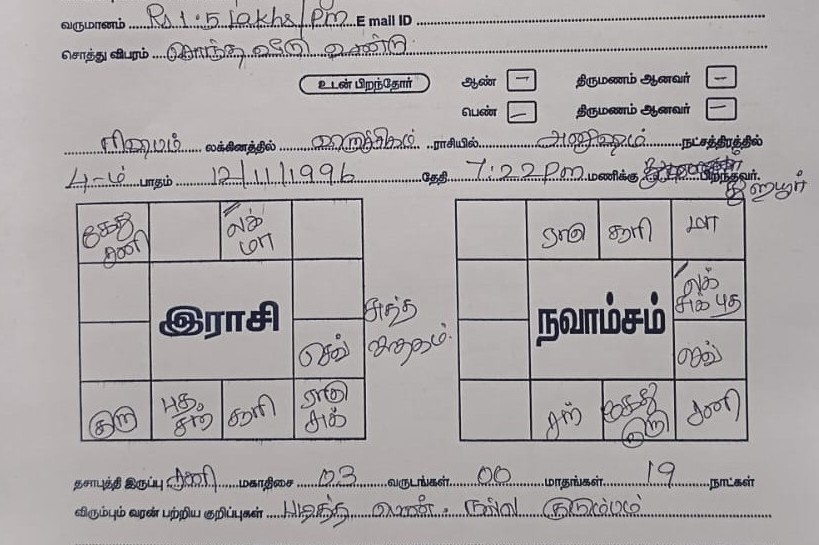 வருமானம் Rs 1.5 lakhs/pm E mail ID
சொத்து விபரம் சொந்த வீடு உண்டு
உடன் பிறந்தோர் ஆண் – திருமணம் ஆனவர் –
பெண் – திருமணம் ஆனவர் –
ரிஷபம் லக்கினத்தில் விருச்சிகம் ராசியில் அனுஷம் நட்சத்திரத்தில்
4-ம் பாதம் 12/11/1996 தேதி 7:22 pm மணிக்கு பிறந்தவர்.
கேது சனி லக் மா
ராகு சூரி மா
லக் சுக் புத
இராசி சுத்த ஜாதகம். நவாம்சம்
செவ் செவ்
குரு புத, சந் சூரி ராகு சுக்
சந் கேது குரு சனி
தசாபுத்தி இருப்பு சனி மகாதிசை 03 வருடங்கள் 00 மாதங்கள் 19 நாட்கள்
விரும்பும் வரன் பற்றிய குறிப்புகள் படித்த பெண். நல்ல குடும்பம்